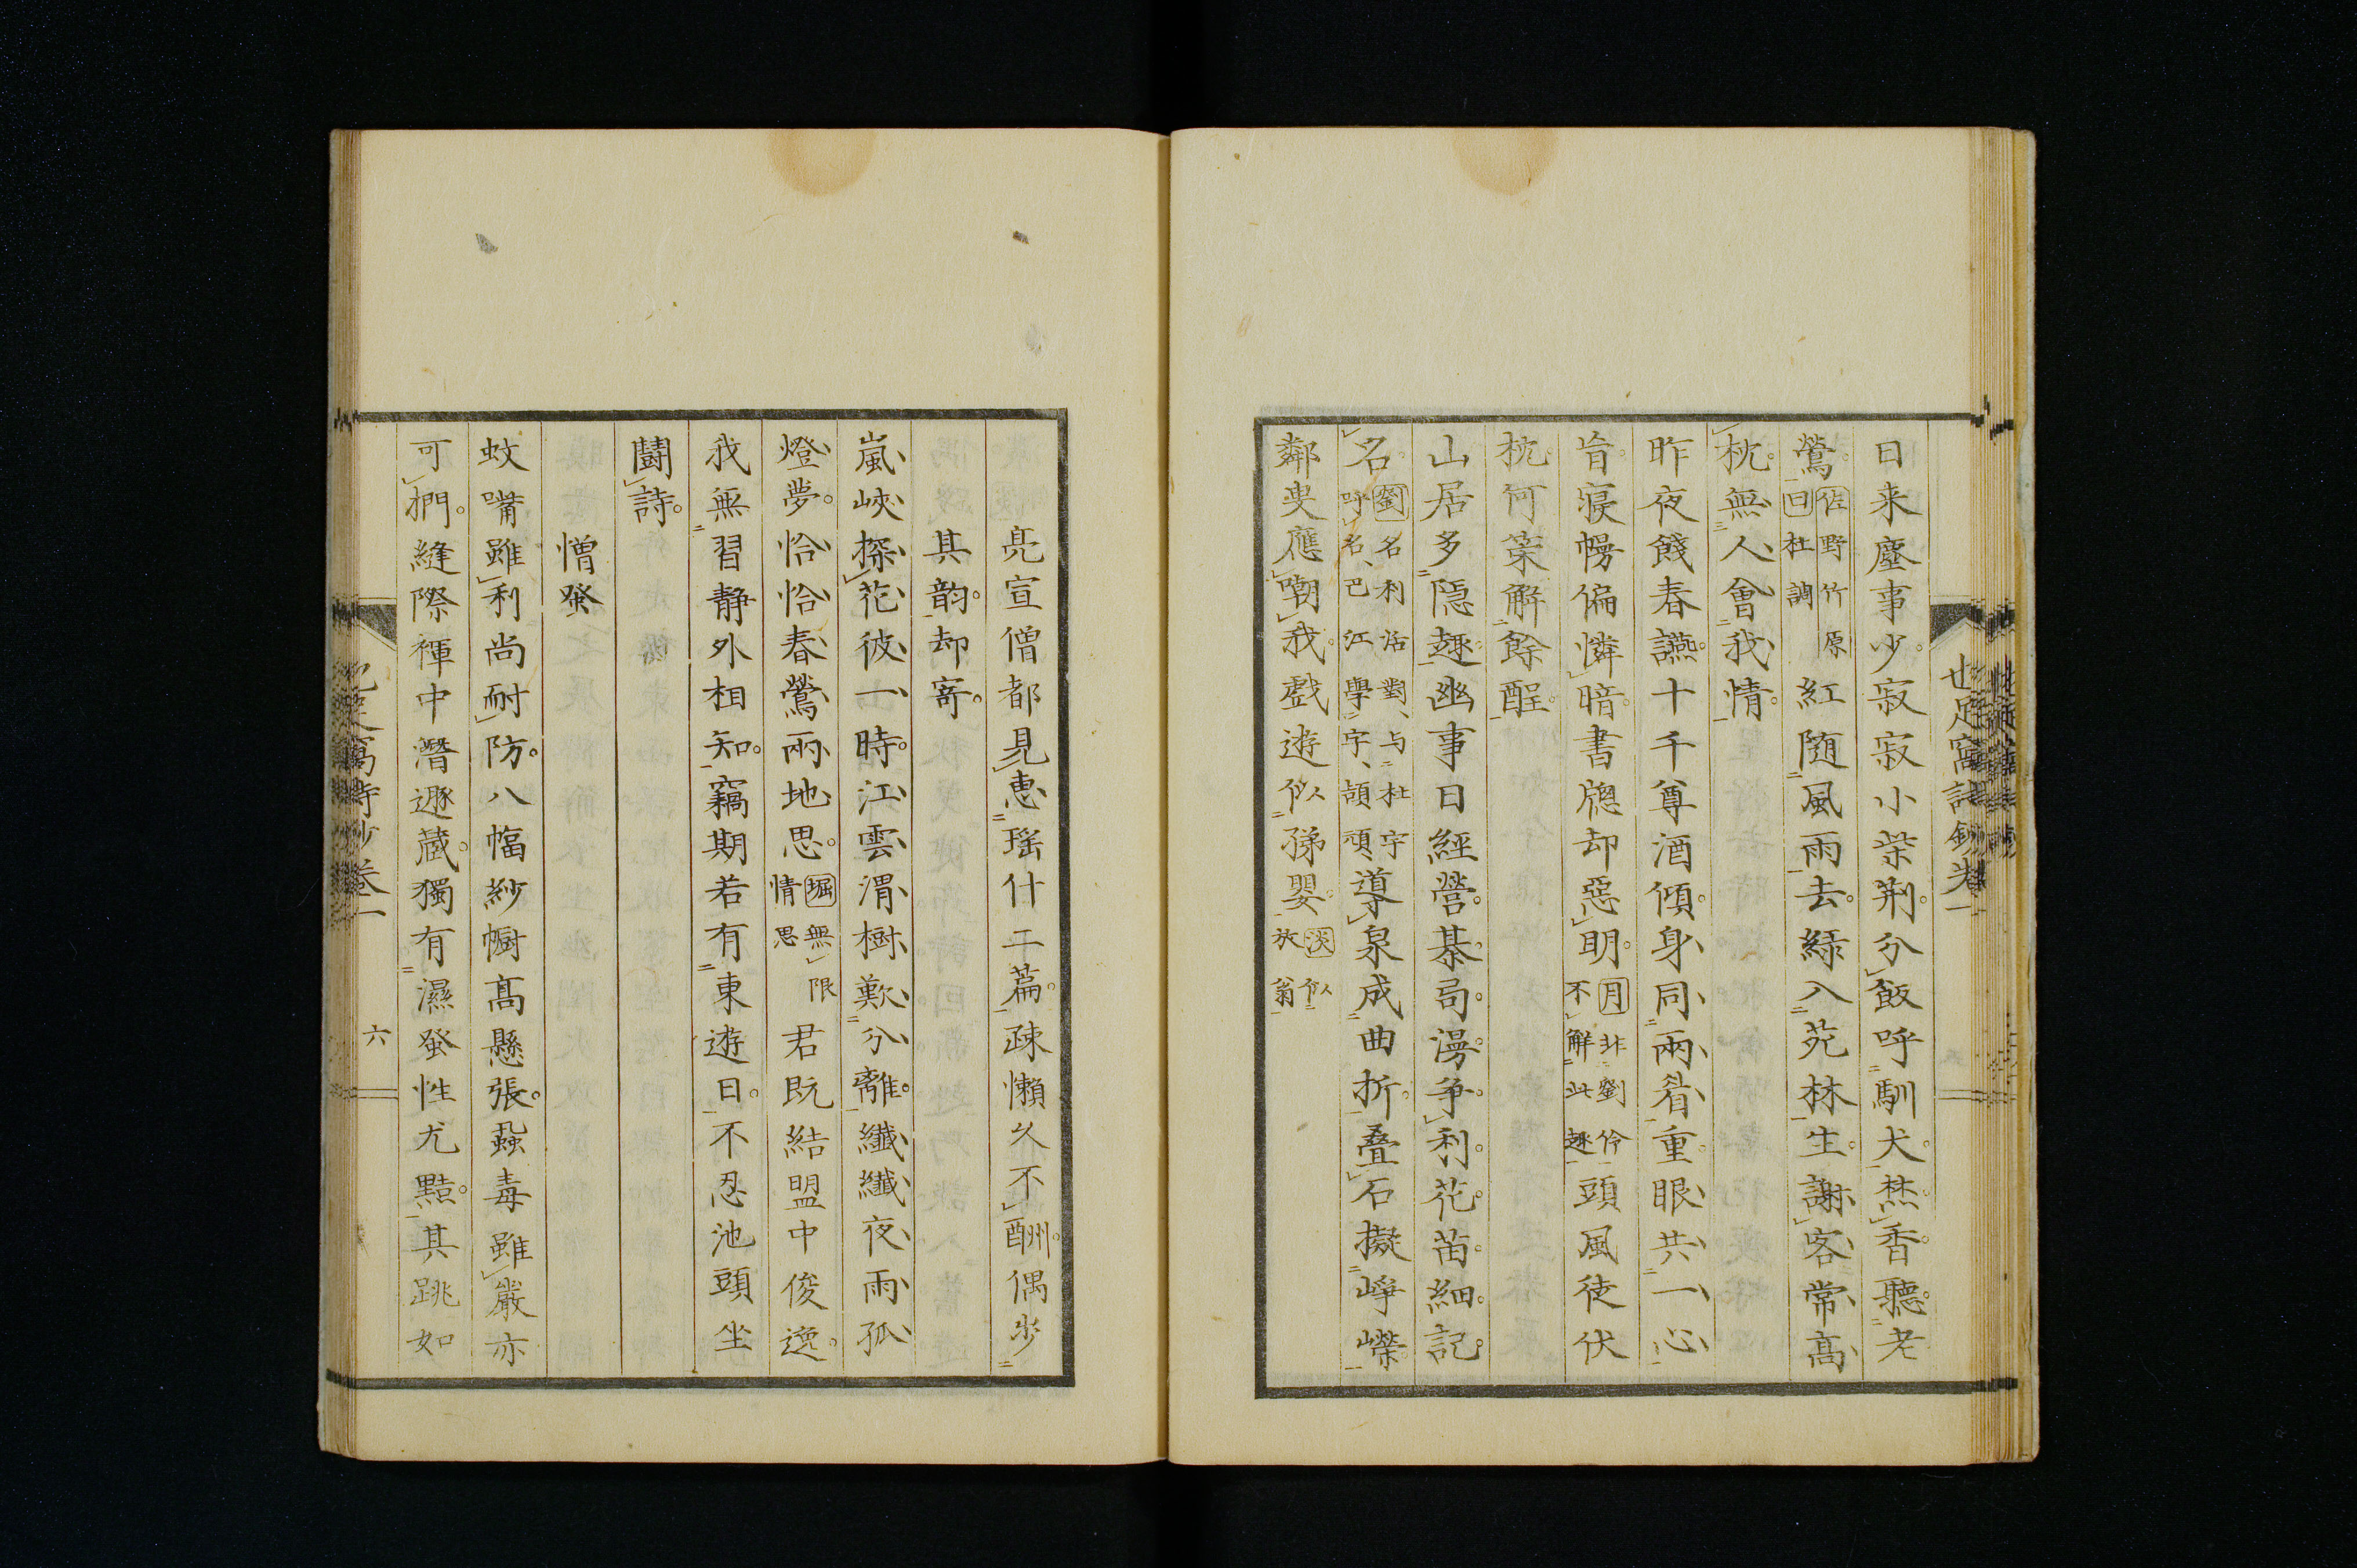 日来塵事少寂寂小柴荆分飯呼馴犬焚香聽老
鶯佐野竹原曰杜調紅随風雨去緑入苑林生謝客常高
枕無人會我情
昨夜餞春讌十千尊酒傾身同兩着重眼共一心
盲寝幔偏憐暗書牕却惡明月非劉伶不解此趣頭風徒伏
枕何策解餘酲
山居多隠趣幽事日經營棊局漫争利花苗細記
名劉名利活對与杜宇呼名巴江學字頡頏導泉成曲折叠石擬崢嶸
鄰叟應嘲我戲遊似孺嬰淡似放翁
也足窩詩鈔卷一
亮宣僧都見惠瑶什二篇疎懶久不酬偶歩
其韵却寄
嵐峽探花彼一時江雲渭樹歎分離纖纖夜雨孤
燈夢恰恰春鶯兩地思堀無限情思君既結盟中俊逸
我無習靜外相知竊期若有東遊日不忍池頭坐
鬪詩
憎蚤
蚊嘴雖利尚耐防八幅紗幮高懸張蝨毒雖嚴亦
可捫縫際褌中潛遯蔵獨有濕蚤性尤黠其跳如
六